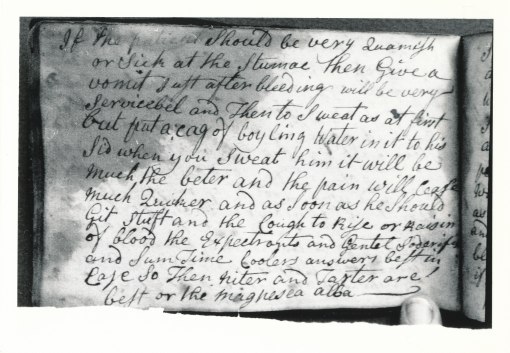 If the patient Should be very Quamish
or Sick at the Stumac then Give a
vomit Just after bleeding will be very
Servicebel and Then to Sweat as at first
but put a cag of boyling Water in it to his
Sid when you Sweat him it will be
much the beter and the pain will Cease
much Quicker and as soon as he Should
Git Stuff and the Cough to Rise or Raising
of blood the Expectrants and Gentel
and Sum Time Coolers answers best in
Case So Then Niter and Tarter are
best or the magnesea alba